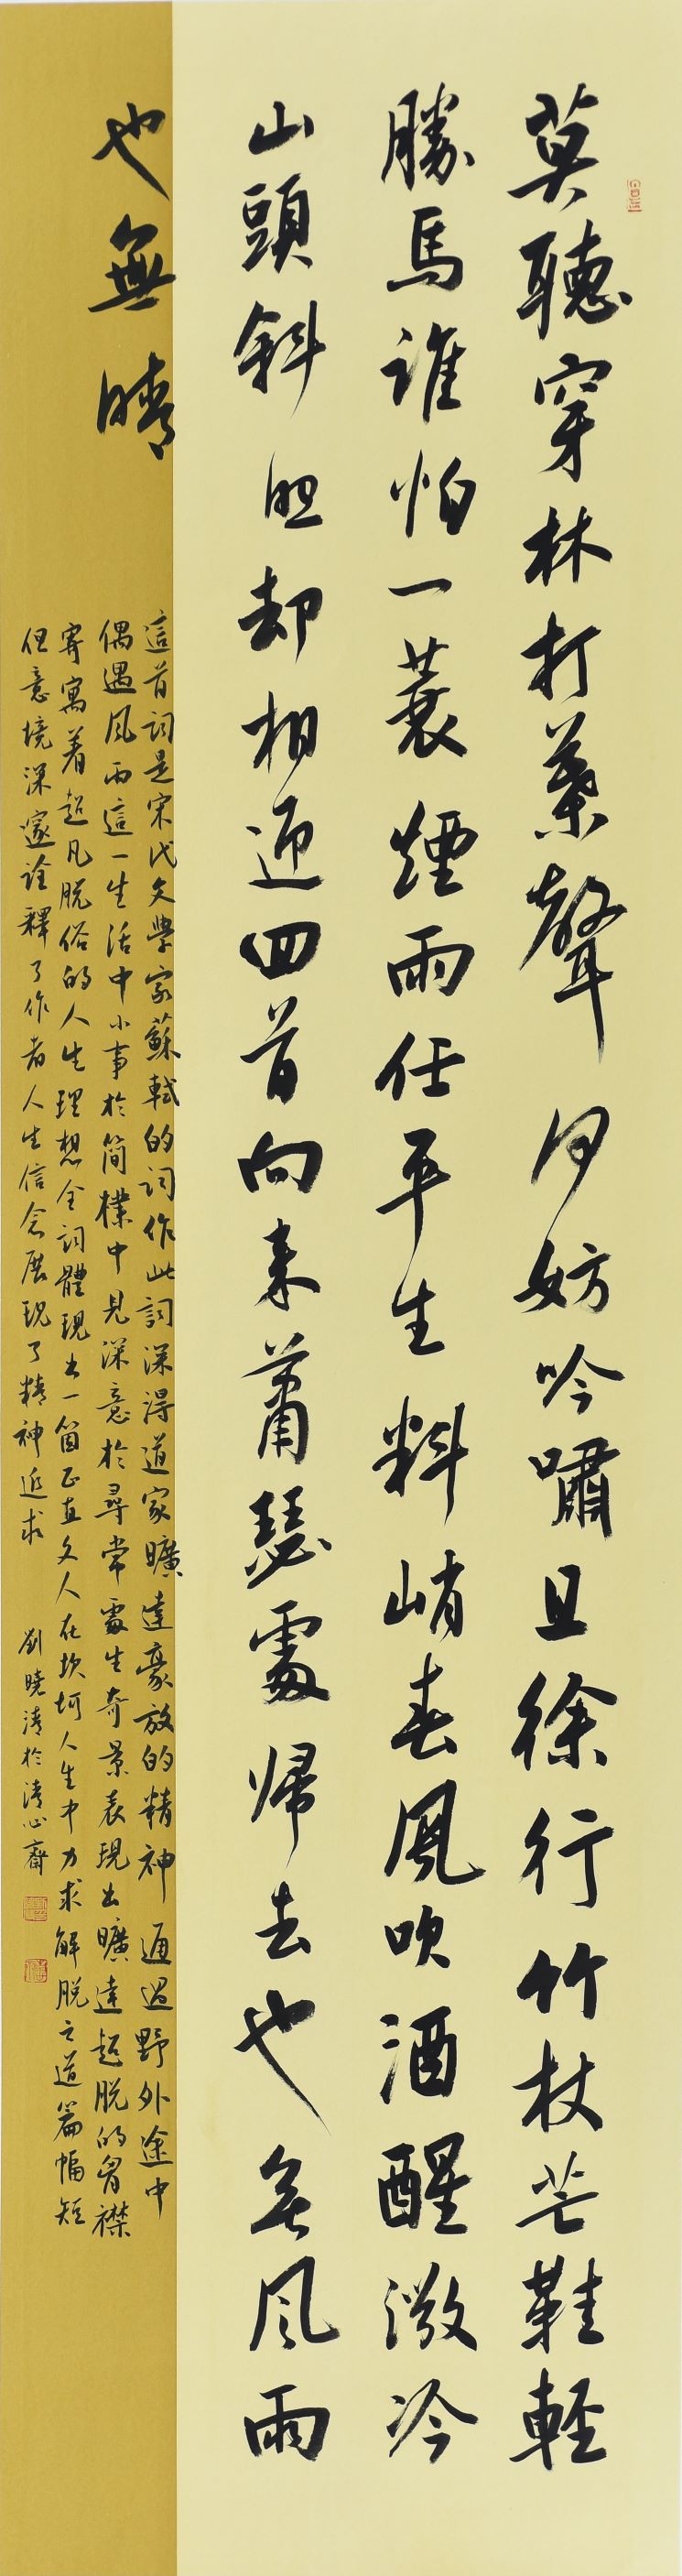 莫聽穿林打葉聲何妨吟嘯且徐行竹杖芒鞋輕
勝馬誰怕一蓑煙雨任平生料峭春風吹酒醒微冷
山頭斜照却相迎回首向来蕭瑟處歸去也無風雨
也無晴
這首詞是宋代文學家蘇軾的詞作此詞深得道家曠達豪放的精神通過野外途中
偶遇風雨這一生活中小事於簡樸中見深意於尋常處生奇景表現出曠達超脱的胸襟
寄寓着超凡脱俗的人生理想全詞體現出一箇正直文人在坎坷人生中力求解脱之道篇幅短
但意境深邃詮釋了作者人生信念展現了精神追求 劉曉清於清心齋